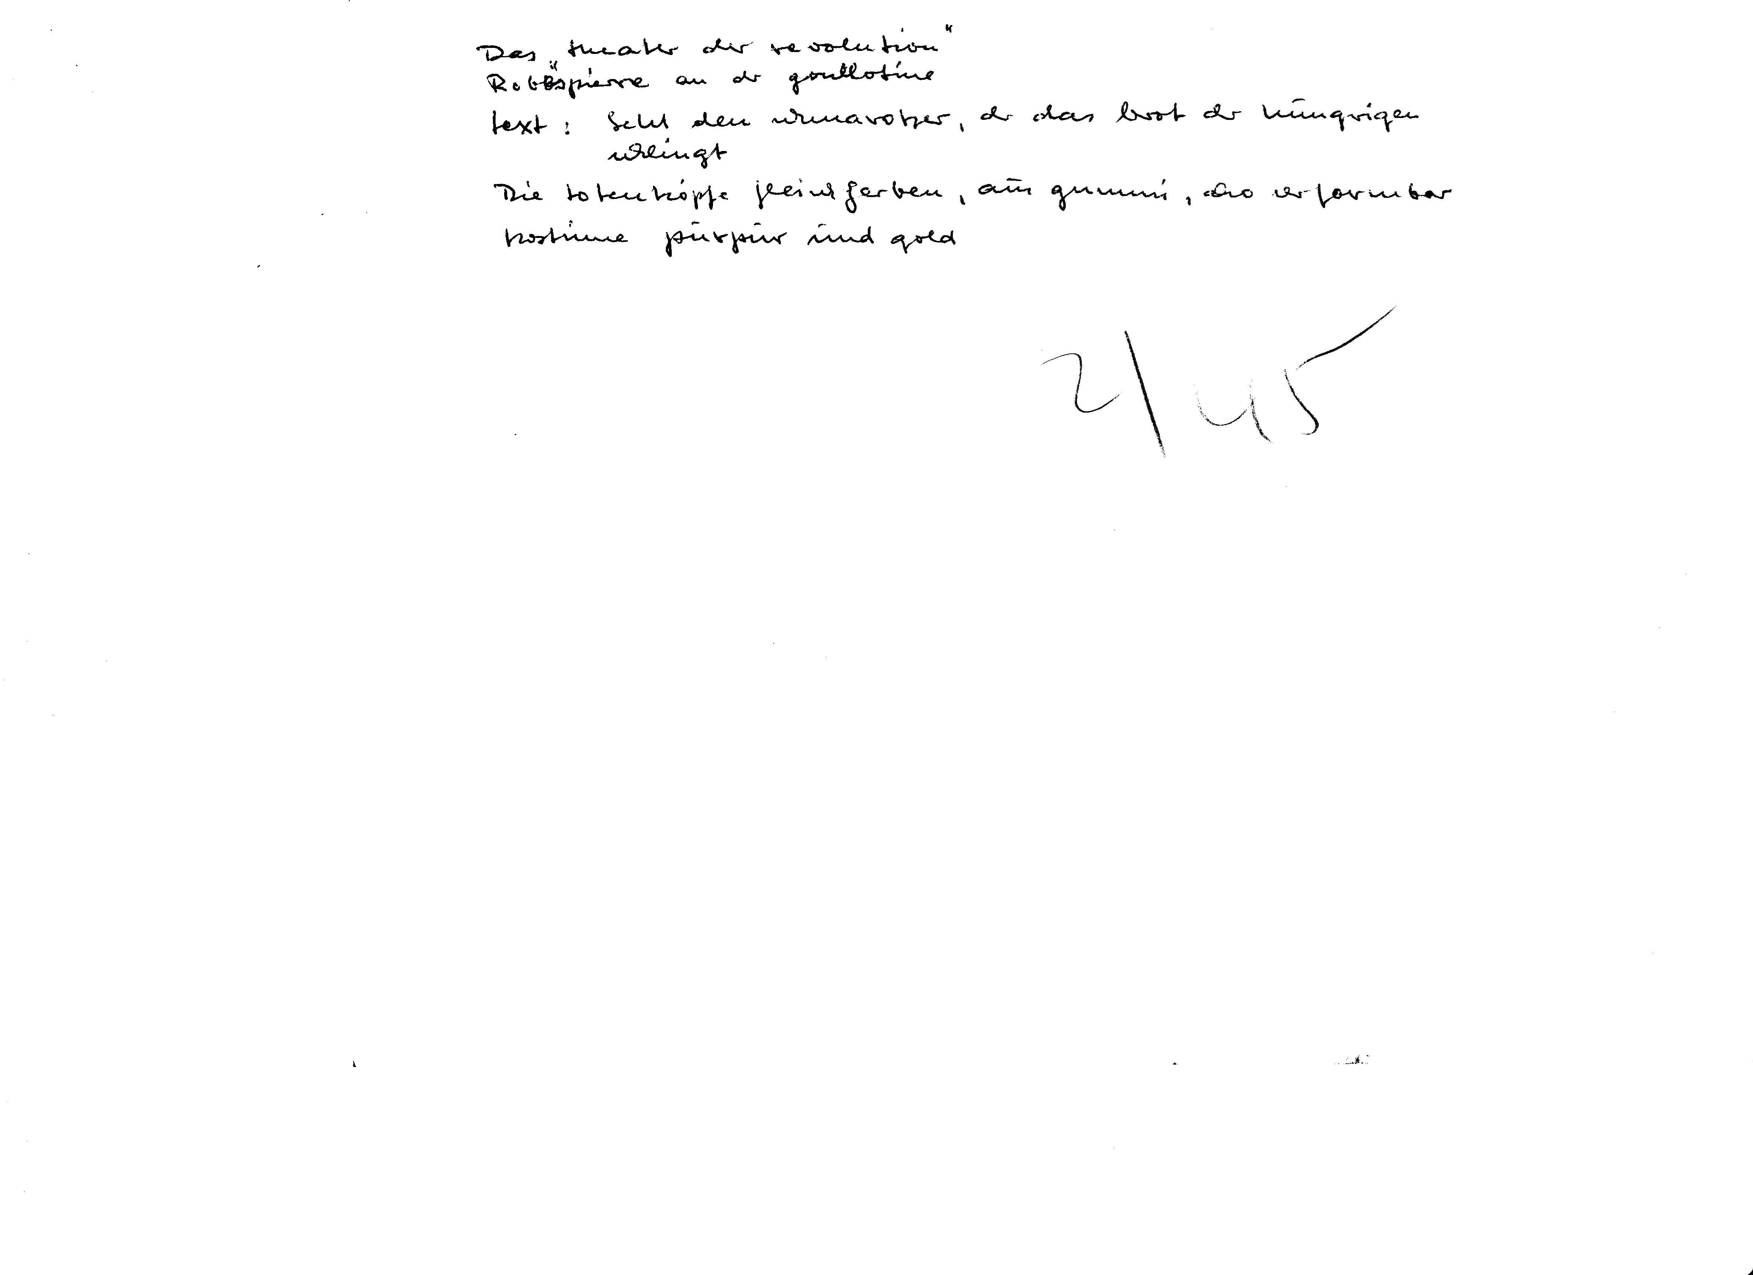 Das „theater der revolution"
Robespierre an der goullotine
text: Seht den schmarotzer, der das brot der hungrigen
schlingt
Die totenköpfe fleischfarben, aus gummi, also verformbar
kostüme purpur und gold
2/45